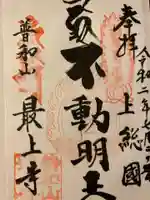 奉拝
令和二年
上総國
不動明王
普和山
最上寺